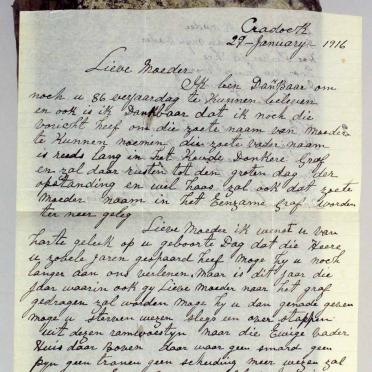 Cradock
29 January 1916
Lieve Moeder
Ik ben Dankbaar om
noch u 86 verjaardag te kunnen beleven
en ook is ik Dankbaar dat ik noch die
voricht heef om die zoete naam van Moeder
te kunnen noemen die zoete vader naam
is reeds lang in het Koude Donkere Graf
en zal daar rusten tot den groten dag der
opstanding en wel haas zal ook dat zoete
Moeder naam in het Eenzame Graf worden
ter neer geleg
Lieve Moeder ik wenst u van
harte geluk op u geboorte Dag dat die Heere
u zovele jaren gespaard heef Moge Hy u noch
langer aan ons verlenen. Maar is dit jaar die
Jaar warin ook gy Lieve Moeder naar het graf
gedragen zal worden moge Hy u dan genade geven
moge u sterven wezen slegs en over stappen
uit dezen ramwoestyn naar die Ewige vader
Huis daar Boven daar waar geen smard geen
pyn geen tranen geen scheiding meer wezen zal